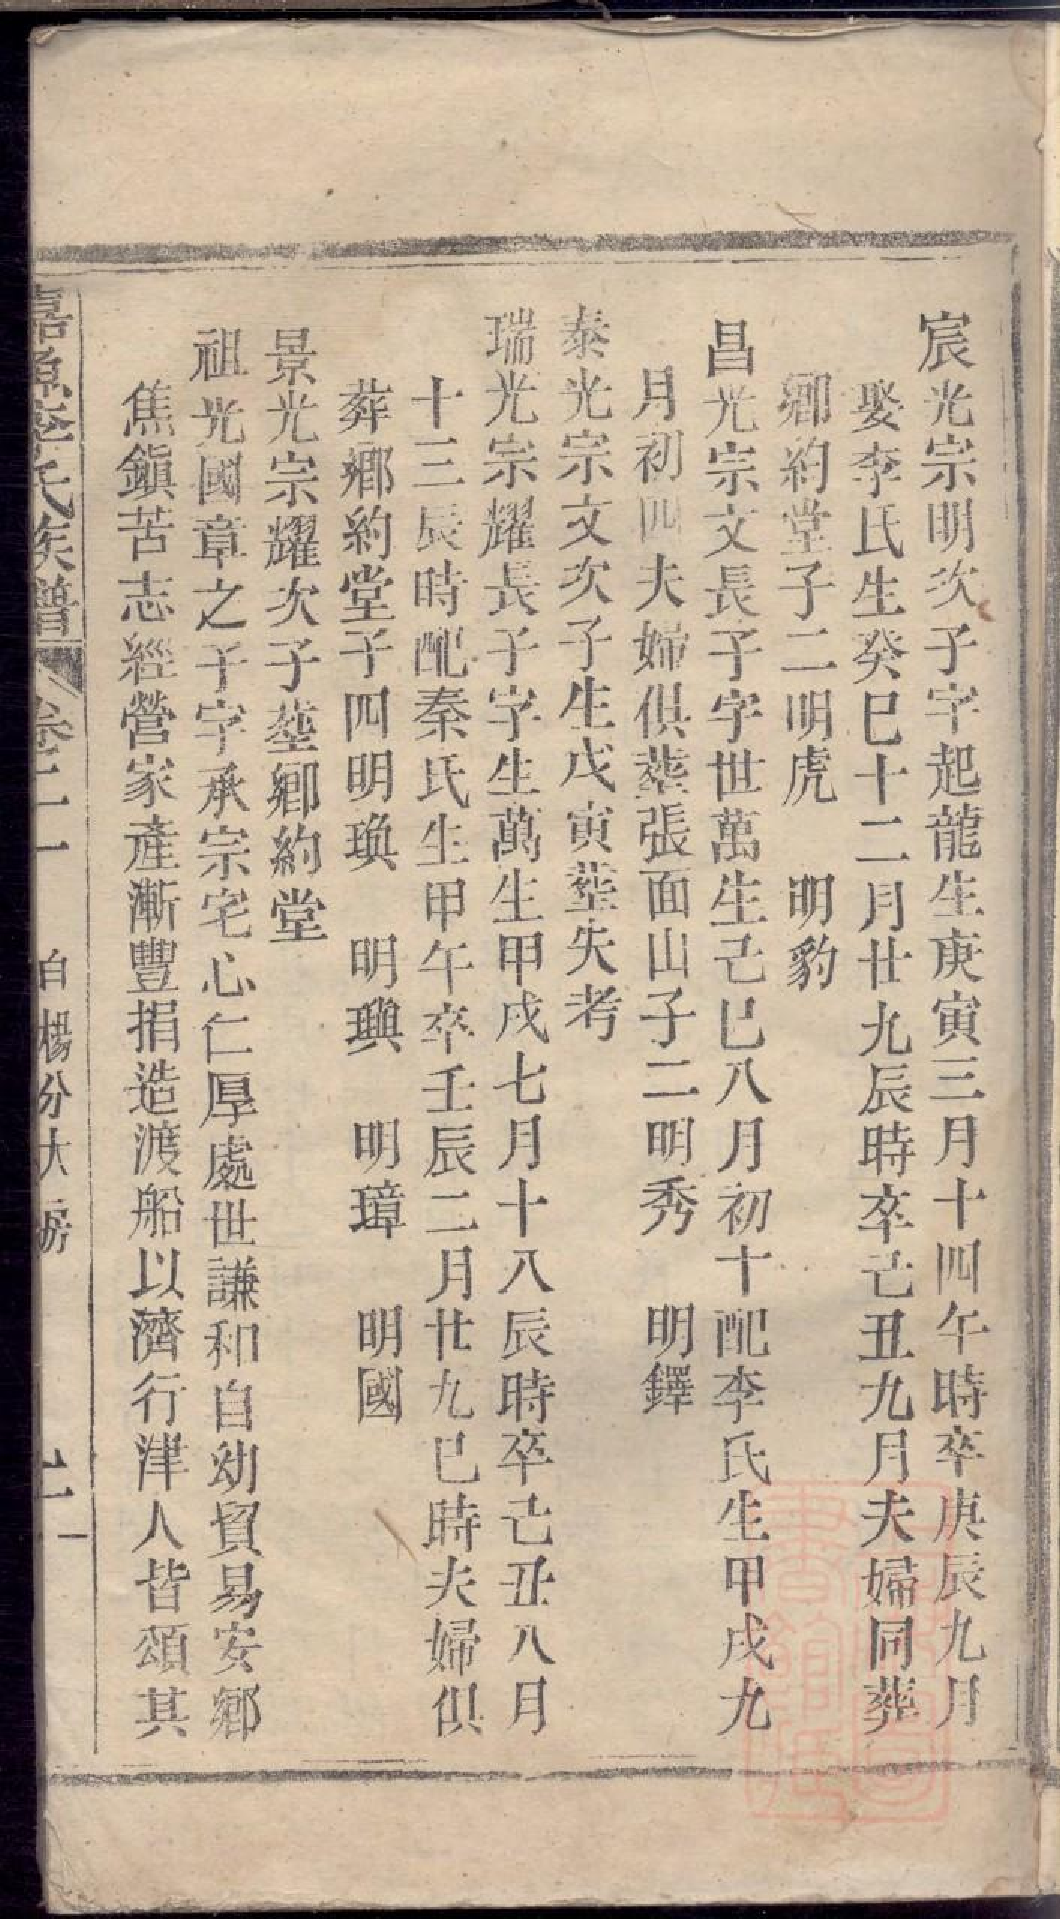 宸光宗明次子字起龍生庚寅三月十四午時卒庚辰九月
娶李氏生癸巳十二月廿九辰時卒己丑九月夫婦同葬
鄉約堂子二明虎　明豹
昌光宗文長子字世萬生己巳八月初十配李氏生甲戌九
月初四夫婦俱塟張面山子二明秀　明鐸
泰光宗文次子生戊寅塟失考
瑞光宗耀長子字生萬生甲戌七月十八辰時卒己丑八月
十三辰時配秦氏生甲午卒壬辰二月廿九巳時夫婦俱
葬鄉約堂子四明瑍　明璵　明璋　明國
景光宗耀次子塟鄉約堂
祖光國章之子字承宗宅心仁厚處世謙和自幼貿易安鄉
焦鎮苦志經營家產漸豐捐造渡船以濟行津人皆頌其
嘉魚李氏族譜　卷二　白楊分大房